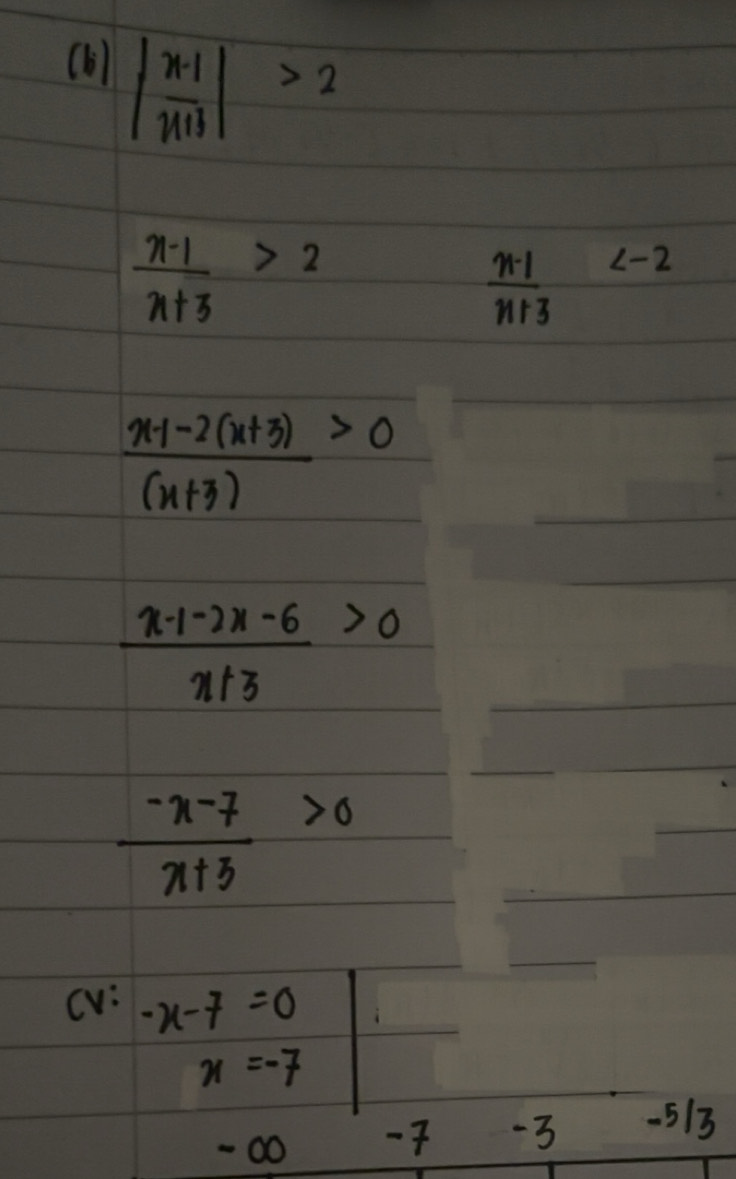 (b) |x-1/x+3| > 2
x-1/x+3 > 2    x-1/x+3 < -2
x-1-2(x+3)/(x+3) > 0
x-1-2x-6/x+3 > 0
-x-7/x+3 > 0
CV: -x-7 = 0
x = -7
-∞    -7    -3    -5/3